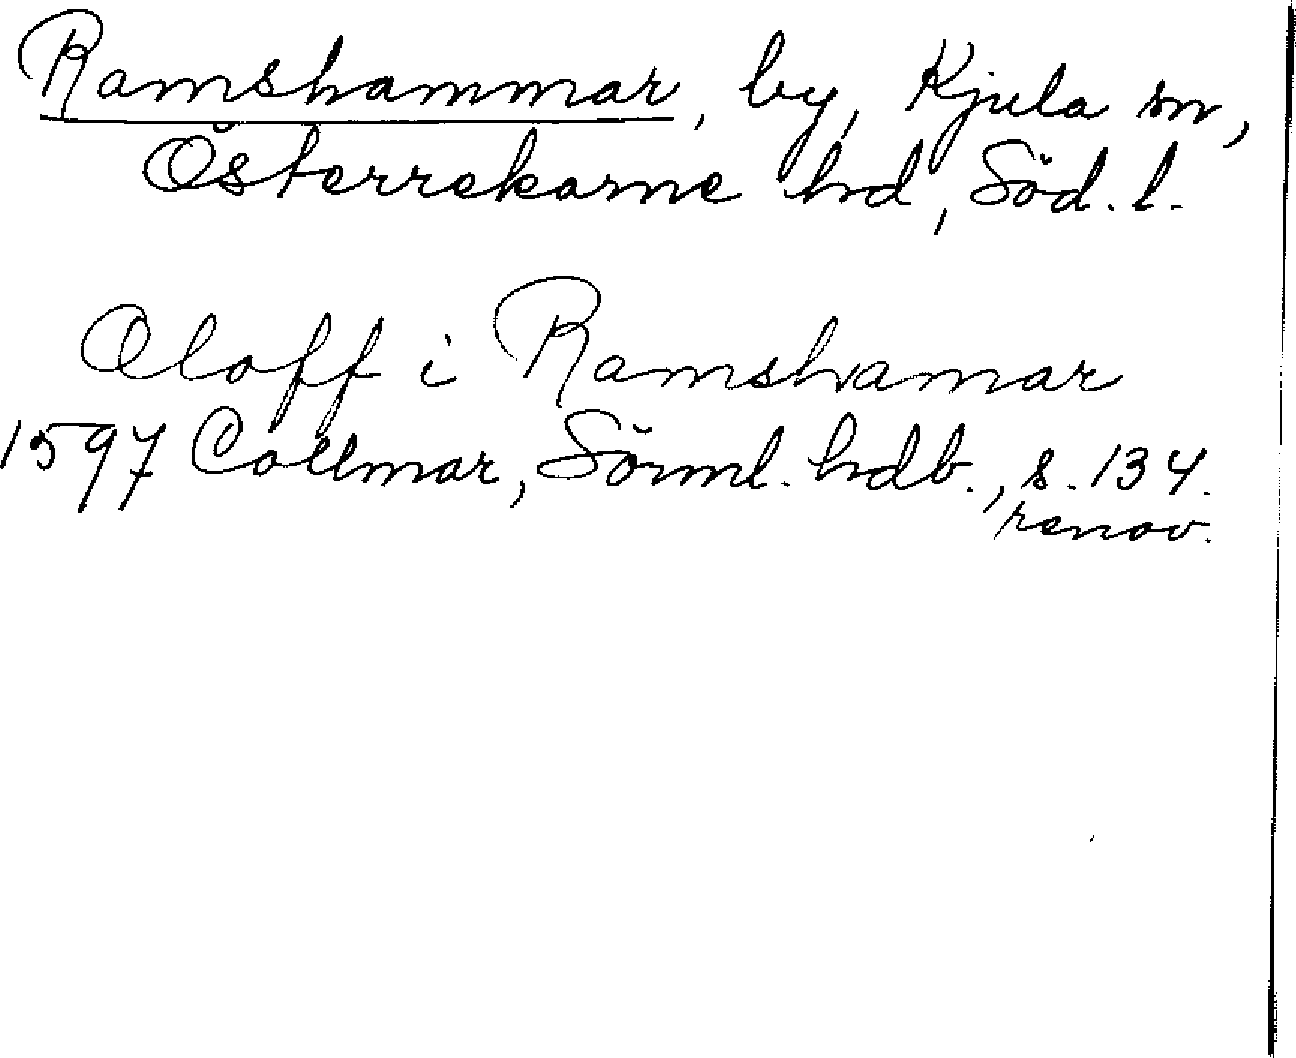 Ramshammar, by, Kjula sn,
Österrekarne hd, Söd. l.
Oloff i Ramshamar
1597 Collmar, Sörml. hdb., s. 134.
renov.